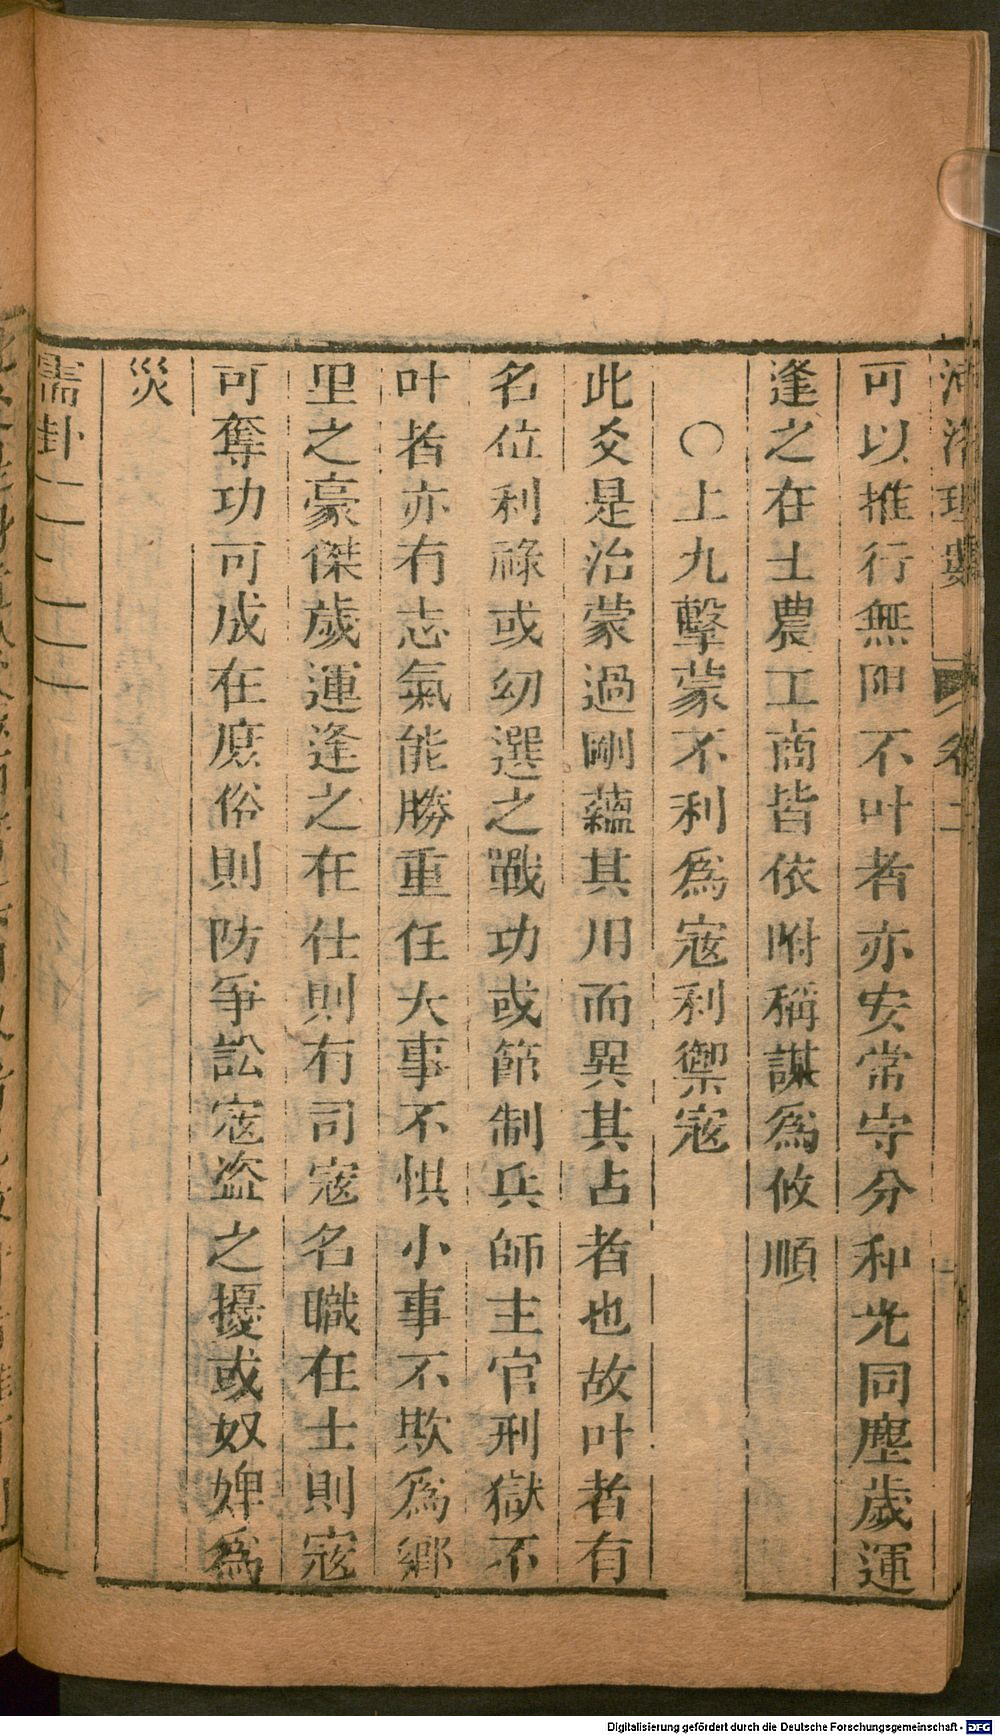 可以推行無阻不叶者亦安常守分和光同塵歲運
逢之在士農工商皆依附稱謀爲攸順
○上九擊蒙不利爲寇利禦寇
此爻是治蒙過剛蘊其用而異其占者也故叶者有
名位利祿或幼選之戰功或節制兵師主官刑獄不
叶者亦有志氣能勝重任大事不惧小事不欺爲鄉
里之豪傑歲運逢之在仕則有司寇名職在士則寇
可奪功可成在庶俗則防爭訟寇盗之擾或奴婢爲
災
需卦
Digitalisierung gefördert durch die Deutsche Forschungsgemeinschaft - DFG